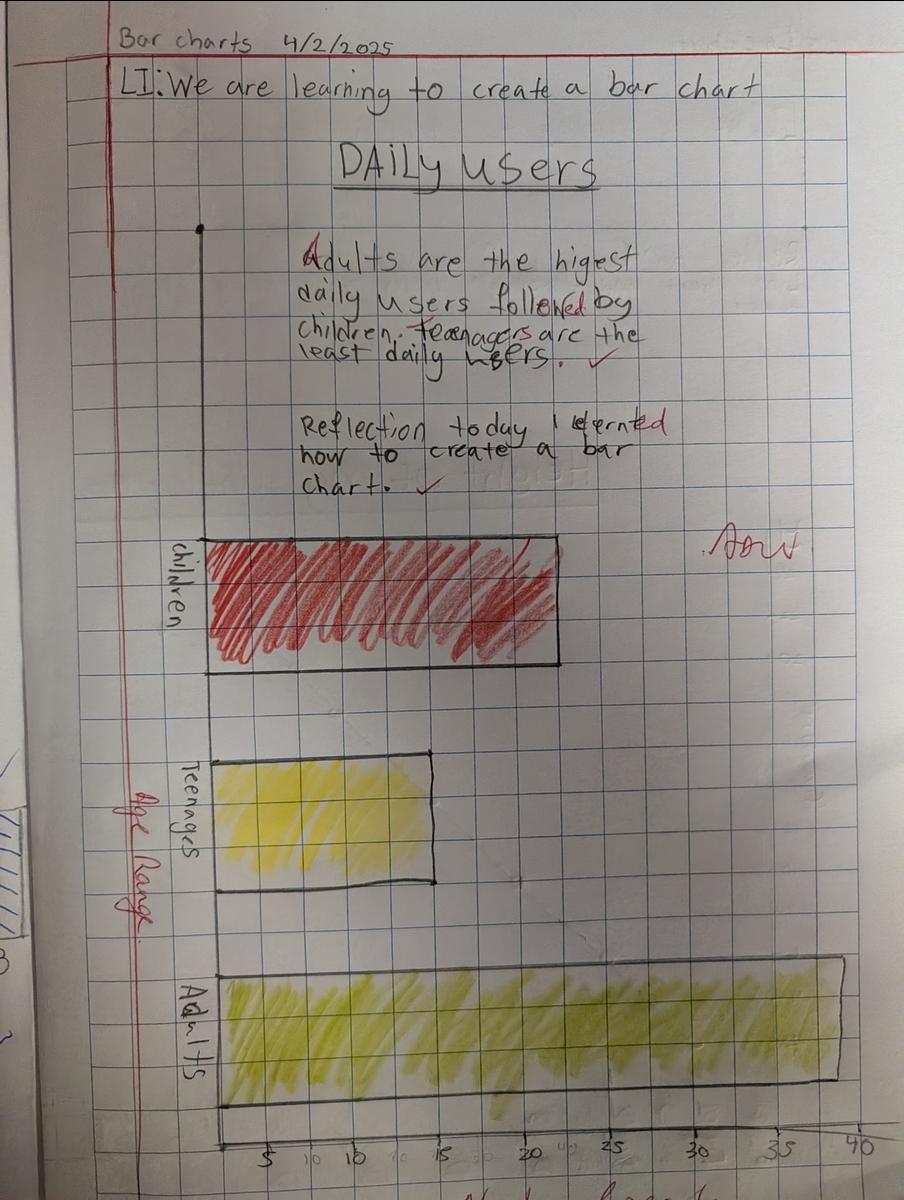 Bar charts 4/2/2025
LI: We are learning to create a bar chart
DAiLy users
Adults are the higest
daily users followed by
children. Teenagers are the
least daily users.
Reflection today I lernted
how to create a bar
chart.
children
Teenages
Age Range.
Adults
5 10 15 20 25 30 35 40